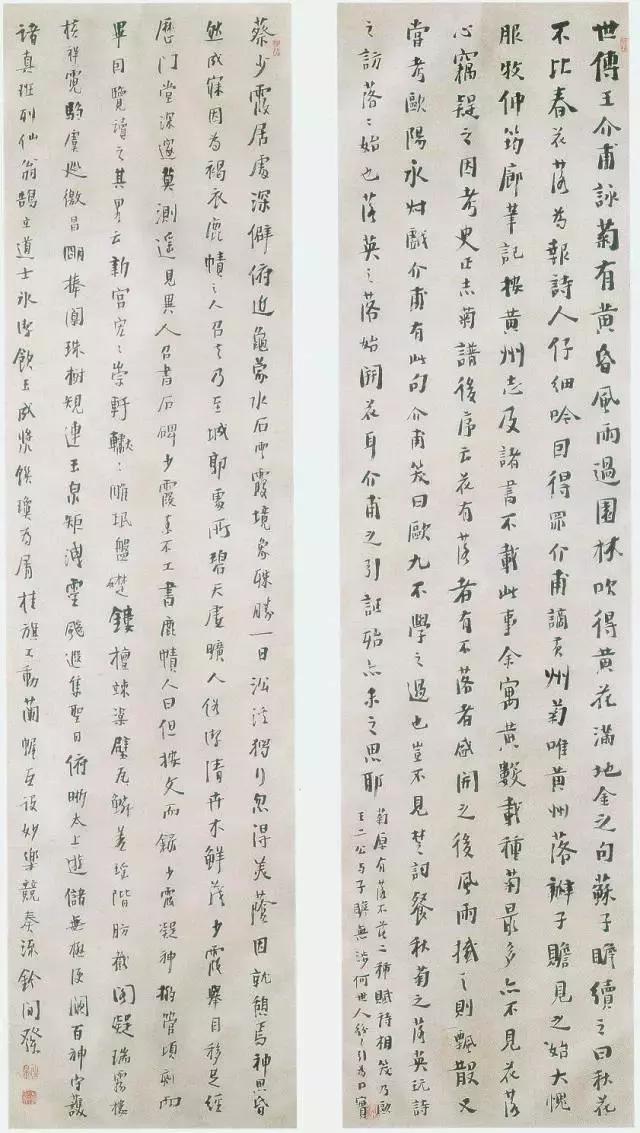 世傳王介甫詠菊有黃昏風雨過園林吹得黃花滿地金之句蘇子瞻續之曰秋花
不比春花落為報詩人仔細吟因得罪介甫謫黃州菊唯黃州落瓣子瞻見之始大愧
服牧仲筠廊筆記按黃州志及諸書不載此事余寓黃數載種菊最多亦不見花落
心竊疑之因考史正志菊譜後序云花有落者有不落者盛開之後風雨撼之則飄散又
嘗考歐陽永叔戲介甫有此句介甫笑曰歐九不學之過也豈不見楚詞餐秋菊之落英玩詩
之訪落落始也落英之落始開花耳介甫之引証殆亦未之思耶
菊原有落不落二種賦詩相笑乃歐
王二公与子瞻無涉何世人紛紛引為口實
蔡少霞居處深僻俯近龜蒙水石雲霞境象殊勝一日沿溪獨行忽得美蔭因就憩焉神思昏
然成寐因為褐衣鹿幘之人召去乃至城郭處所碧天虛曠人俗潔清卉木鮮茂少霞舉目移足經
歷門堂深邃莫測遥見異人召書石碑少霞素不工書鹿幘人曰但按文而錄少霞凝神搦管頃刻而
畢因覽讀之其略云新宮宏宏崇軒轣轣雕珉盤礎鏤檀竦楶壁瓦鱗差瑤階肪截閣凝瑞霧樓
橫祥霓騶虞巡徼昌明捧閫珠樹規連玉泉矩洩靈飈遐集聖日俯晰太上遊儲無極便闕百神守護
諸真班列仙翁鵠立道士冰潔飲玉成漿饌瓊為屑桂旗不動蘭幄互設妙樂競奏流鈴間發